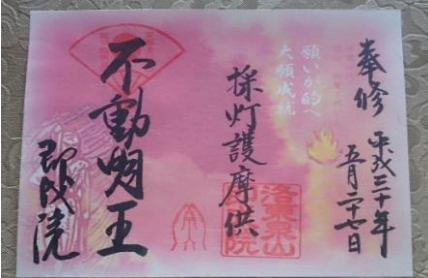 奉修
平成三十年
五月二十七日
願いが的へ
大願成就
採灯護摩供
洛東泉山
即成院
不動明王
即成院